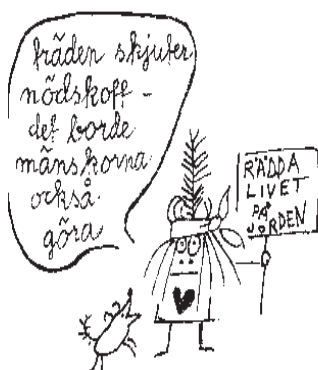 träden skjuter
nödskott -
det borde
mänskorna
också
göra
RÄDDA
LIVET
PÅ
JORDEN